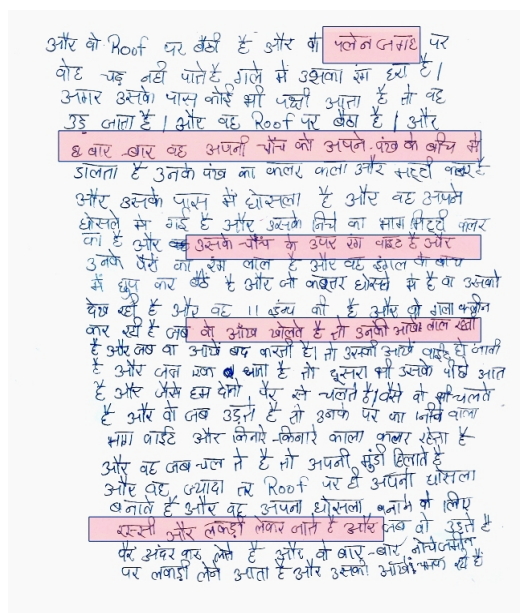 और वो Roof पर बैठी है और वो प्लेन जगह पर
वोह चढ़ नही पाते है गले में उसका रंग हरा है।
अगर उसके पास कोई भी पक्षी आता है तो वह
उड़ जाता है। और वह Roof पर बैठा है। और
& बार-बार वह अपनी चौंच को अपने पंख के बीच में
डालता है उनके पंख का कलर काला और मट्टी कलर है
और उसके पास में घोसला है और वह अपने
घोसले में गई है और उसके निचे का भाग मिट्टी कलर
का है और उसके चौंच के उपर रंग वाइट है और
उनके पैरों का रंग लाल है और वह इंगल के बीच
में छुप कर बैठे है और जो कबूतर घोसले में है वो उसको
देख रही है और वह 11 इन्च की है और वो गला क्लीन
कर रही है जब वो आँख खोलते है तो उनकी आँखे लाल रखता
है और जब वो आखें बंद करती है। तो उसकी आखें वाईट हो जाती
है और जब एक आता है तो दूसरा भी उसके पीछे आत
है और जैसे हम दोनो पैर से चलते है। वैसे वो भी चलते
है और वो जब उड़ते है तो उनके पर का नीचे वाला
भाग वाईट और किनारे-किनारे काला कलर रहेता है
और वह जब चल ते है तो अपनी मुंडी हिलाते है
और वह ज्यादा तर Roof पर ही अपना घोसला
बनाते है और वह अपना घोसला बनाने के लिए
रस्सी और लकड़ी लेकर जाते है और जब वो उड़ते है
पैर अंदर कर लेते है और वो बार-बार नीचे जमीन
पर लकड़ी लेने आता है और उसकी आँखे चमक रही है